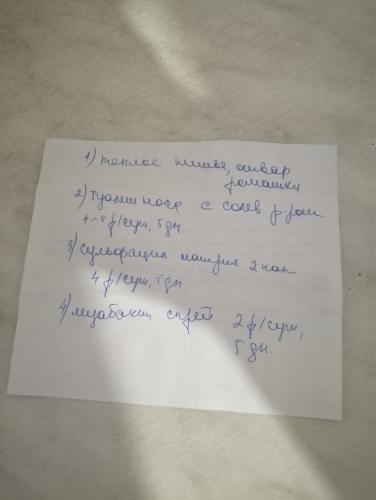 1) теплое питье, отвар
ромашки
2) Туалет носа с солев. р-ром
4-5 р/сут, 5 дн
3) сульфацил натрия 2 кап
4 р/сут, 5 дн
4) спрей 2 р/сут,
5 дн.